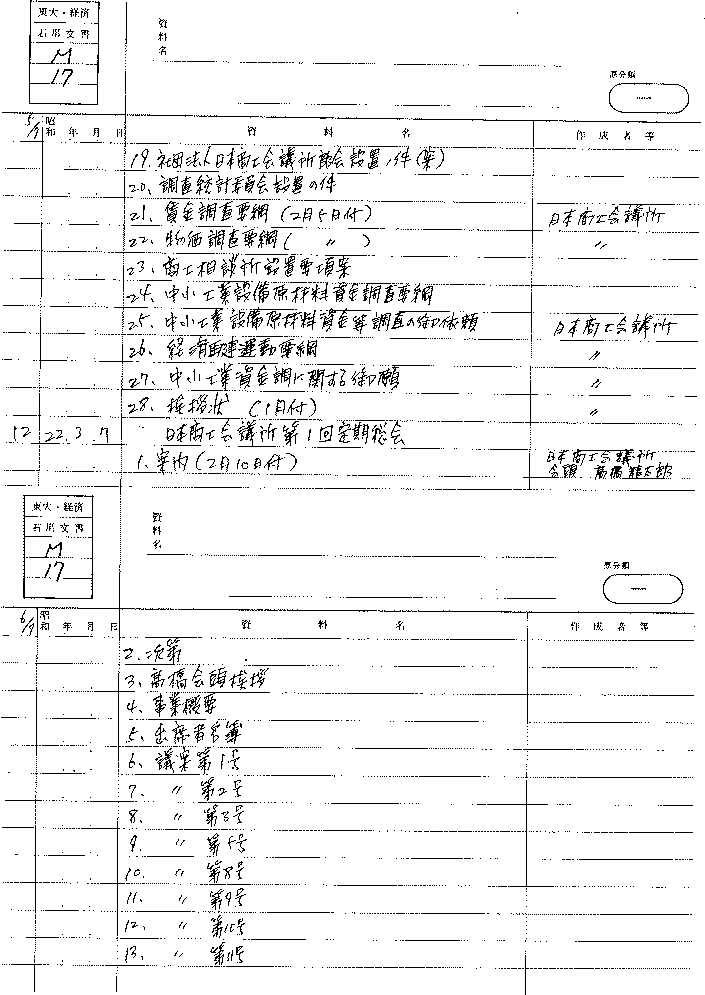 東大・経済
資料名
石川文書
M
17
原分類
5/9 昭和 年 月 日 資 料 名 作成者等
19. 社団法人日本商工会議所部会設置ノ件(案)
20. 調査統計委員会設置の件
21. 賃金調査要綱(2月5日付) 日本商工会議所
22. 物価調査要綱( 〃 ) 〃
23. 商工相談所設置要項案
24. 中小工業設備原材料資金調査要綱
25. 中小工業設備原材料資金等調査の御依頼 日本商工会議所
26. 経済再建運動要綱 〃
27. 中小工業資金調に関する御願 〃
28. 挨拶状 (1月付) 〃
12 22 3 7 日本商工会議所第1回定期総会
1. 案内(2月10日付) 日本商工会議所
会頭 高橋龍太郎
東大・経済
資料名
石川文書
M
17
原分類
6/9 昭和 年 月 日 資 料 名 作成者等
2. 次第
3. 高橋会頭挨拶
4. 事業概要
5. 出席者名簿
6. 議案第1号
7. 〃 第2号
8. 〃 第3号
9. 〃 第5号
10. 〃 第8号
11. 〃 第9号
12. 〃 第10号
13. 〃 第11号